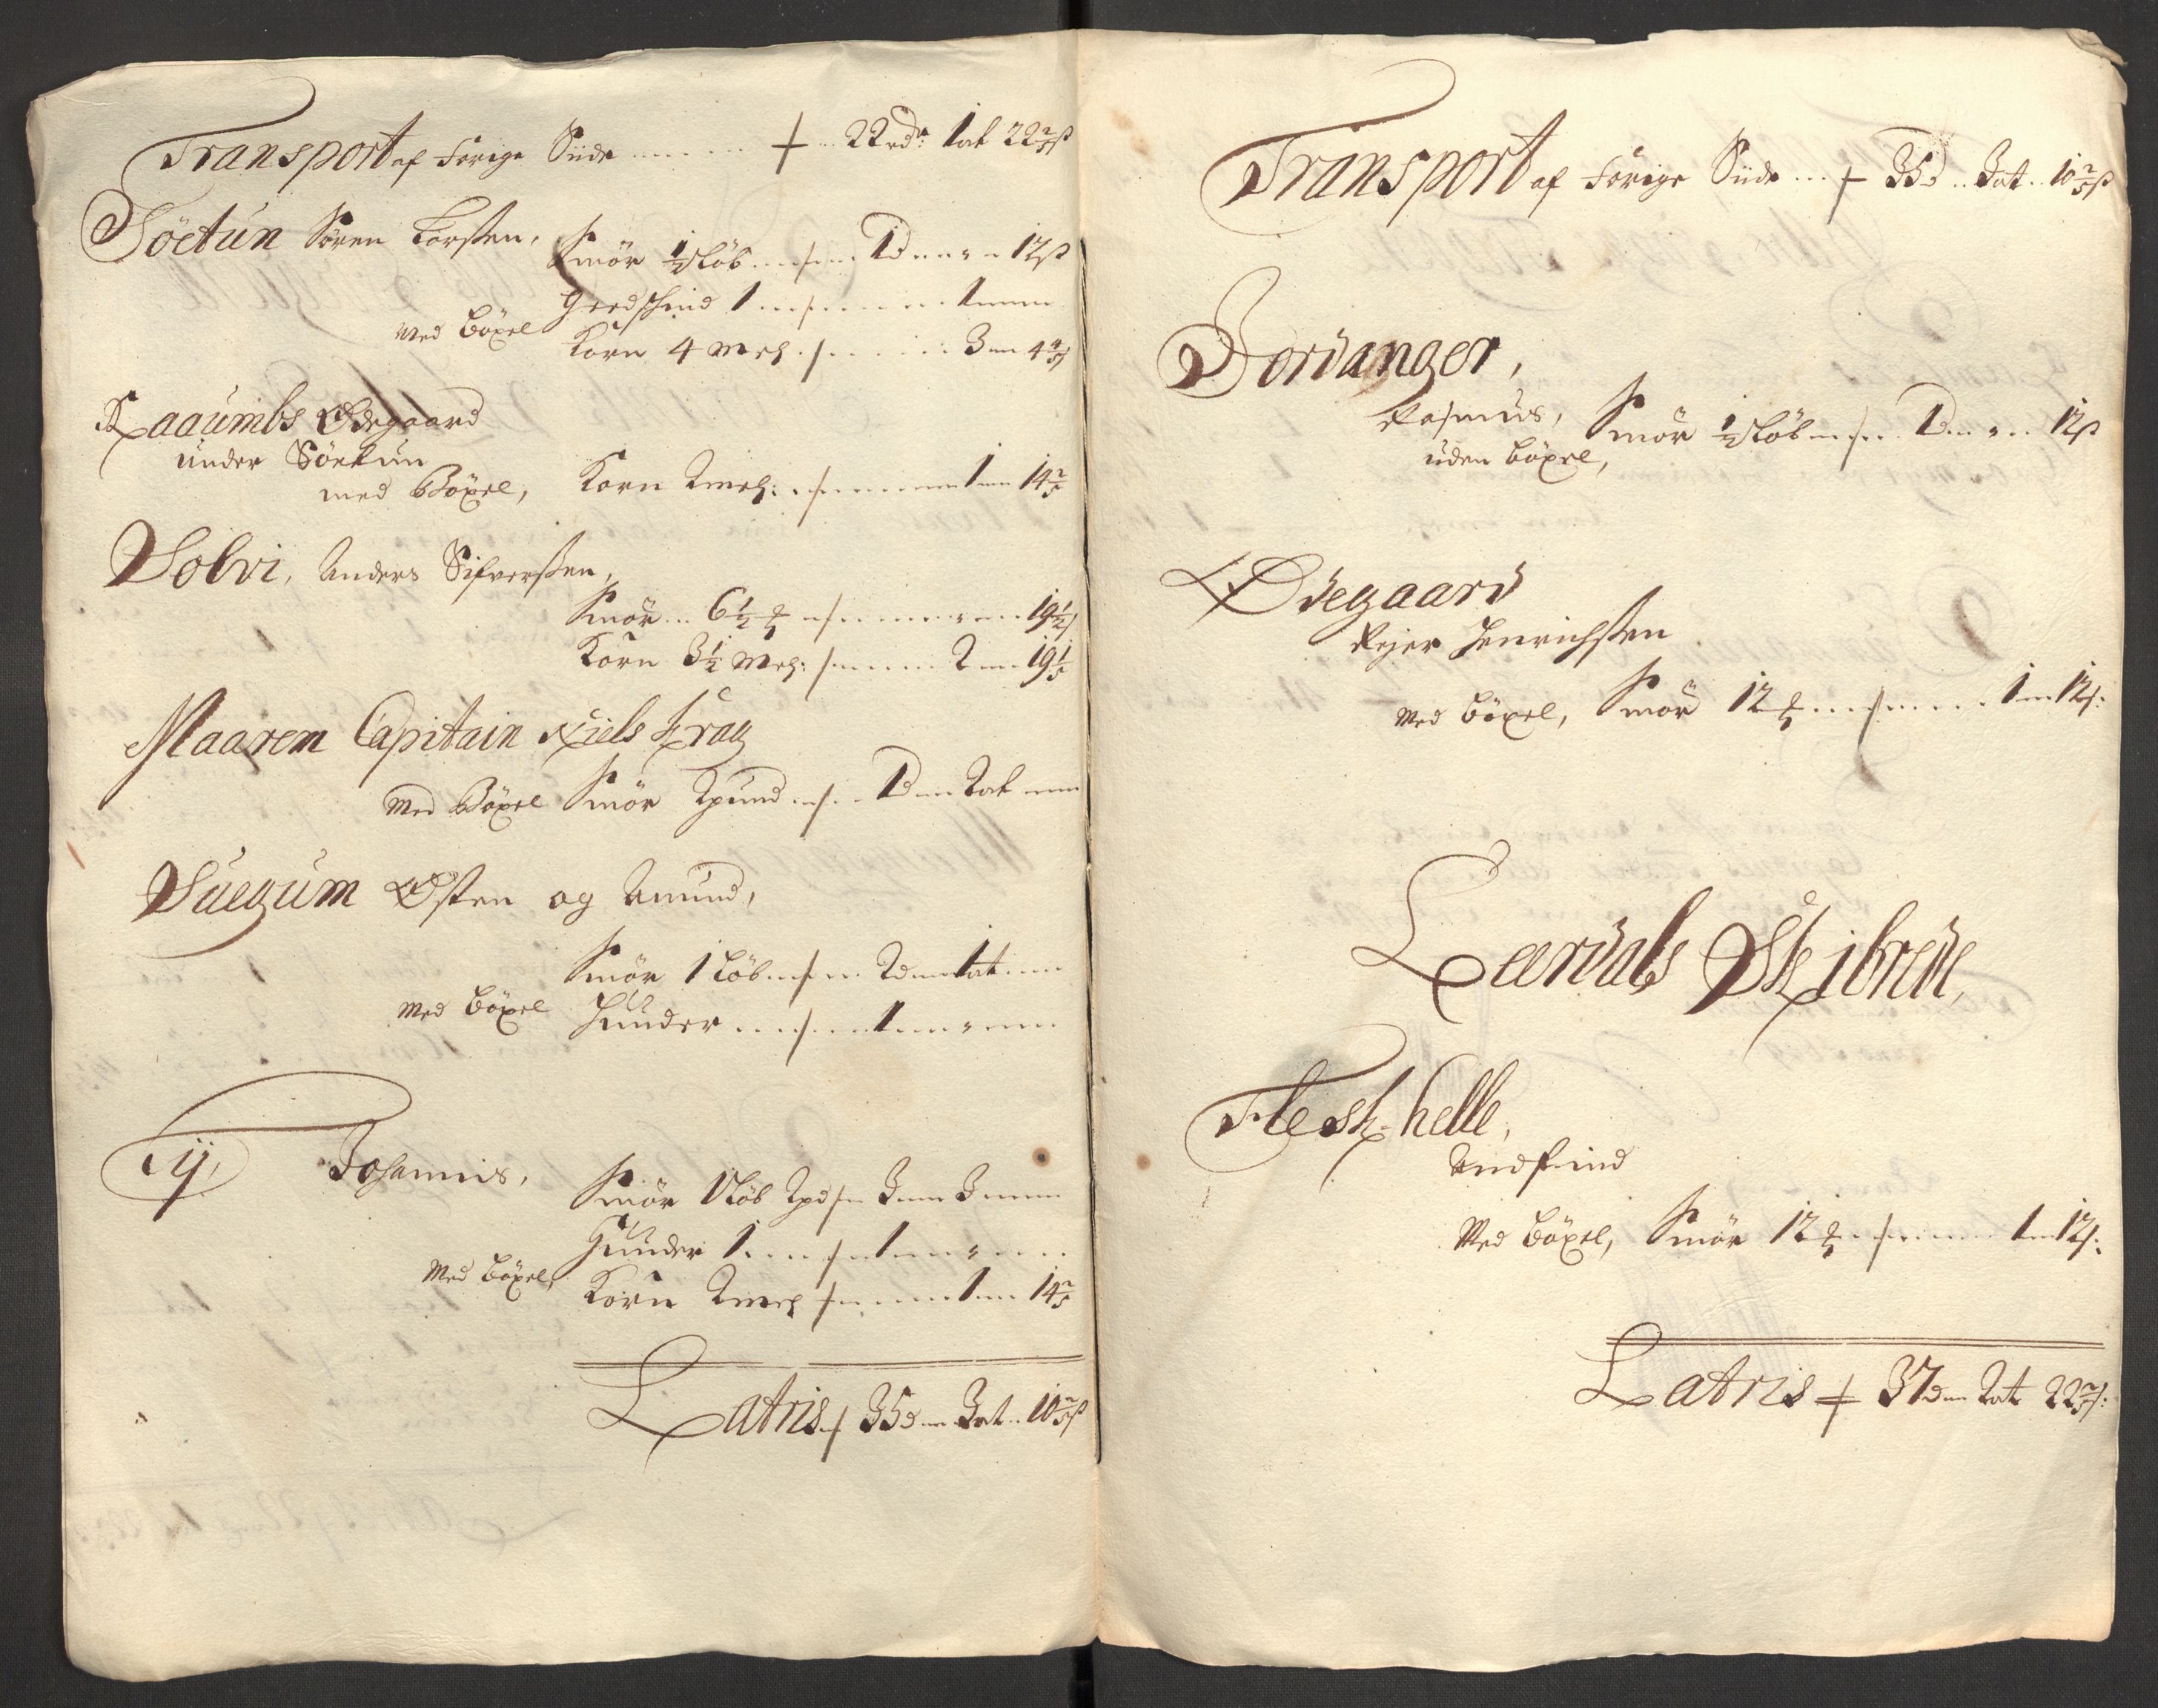 Transport af forige Siide ....... + .. 22 rdr: 1 ort 22 2/5 ß
Söetün Søren Larsten,
Smör ½ Löb ... 1 d ... 12 ß
Giedschind 1 ... 1
Med böxel
Korn 4 mel: ... 3 ... 4 4/5
Raaumbs Ødegaard
ünder Söetün
med Böxel, Korn 2 mel: ... 1 ... 14 2/5
Solvi, Anders Sifversten,
Smör .. 6½ ... 19½
Korn 3½ mel: ... 2 ... 19 1/5
Maarem Capitain Niels Krag
Med Böxel Smör 2 pund ... 1 d ... 2 ort
Suegum Østen og Amund,
Smör 1 Löb ... 2 d ... 1 ort
Med böxel Huuder ... 1
Ty, Johannis,
Smör 1 Löb 2 pd ... 3 ... 3
Huuder 1 ... 1
Med böxel,
Korn 2 mel ... 1 ... 14 2/5
Latris + 35 d .. 3 ort .. 10 2/5 ß
Transport af forige Siide ... + 35 d .. 3 ort .. 10 2/5 ß
Dordanger,
Rasmus, Smör ½ Löb ... 1 d ... 12 ß
uden böxel,
Ødegaard
Rejer Henrichsten
Med böxel, Smör 12 ... 1 ... 12 ß:
Leerdals Skibrede,
Flesk-helle,
Andfind
Med böxel, Smör 12 ... 1 ... 12 ß:
Latris + 37 d .. 2 ort 22 2/5 ß: